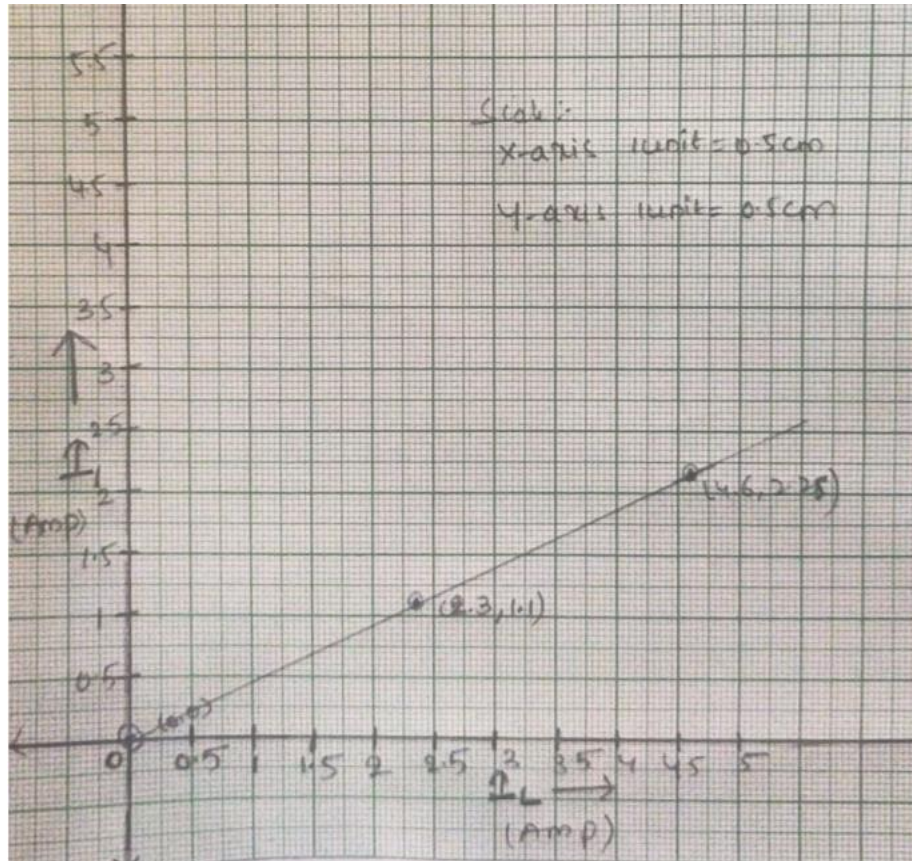 5.5
5
4.5
4
3.5
3
2.5
2
1.5
1
0.5
I₁
(Amp)
Scale:-
X-axis 1unit = 0.5cm
Y-axis 1unit = 0.5cm
(4.6, 2.25)
(2.3, 1.1)
(0,0)
0 0.5 1 1.5 2 2.5 3 3.5 4 4.5 5
I_L
(Amp)